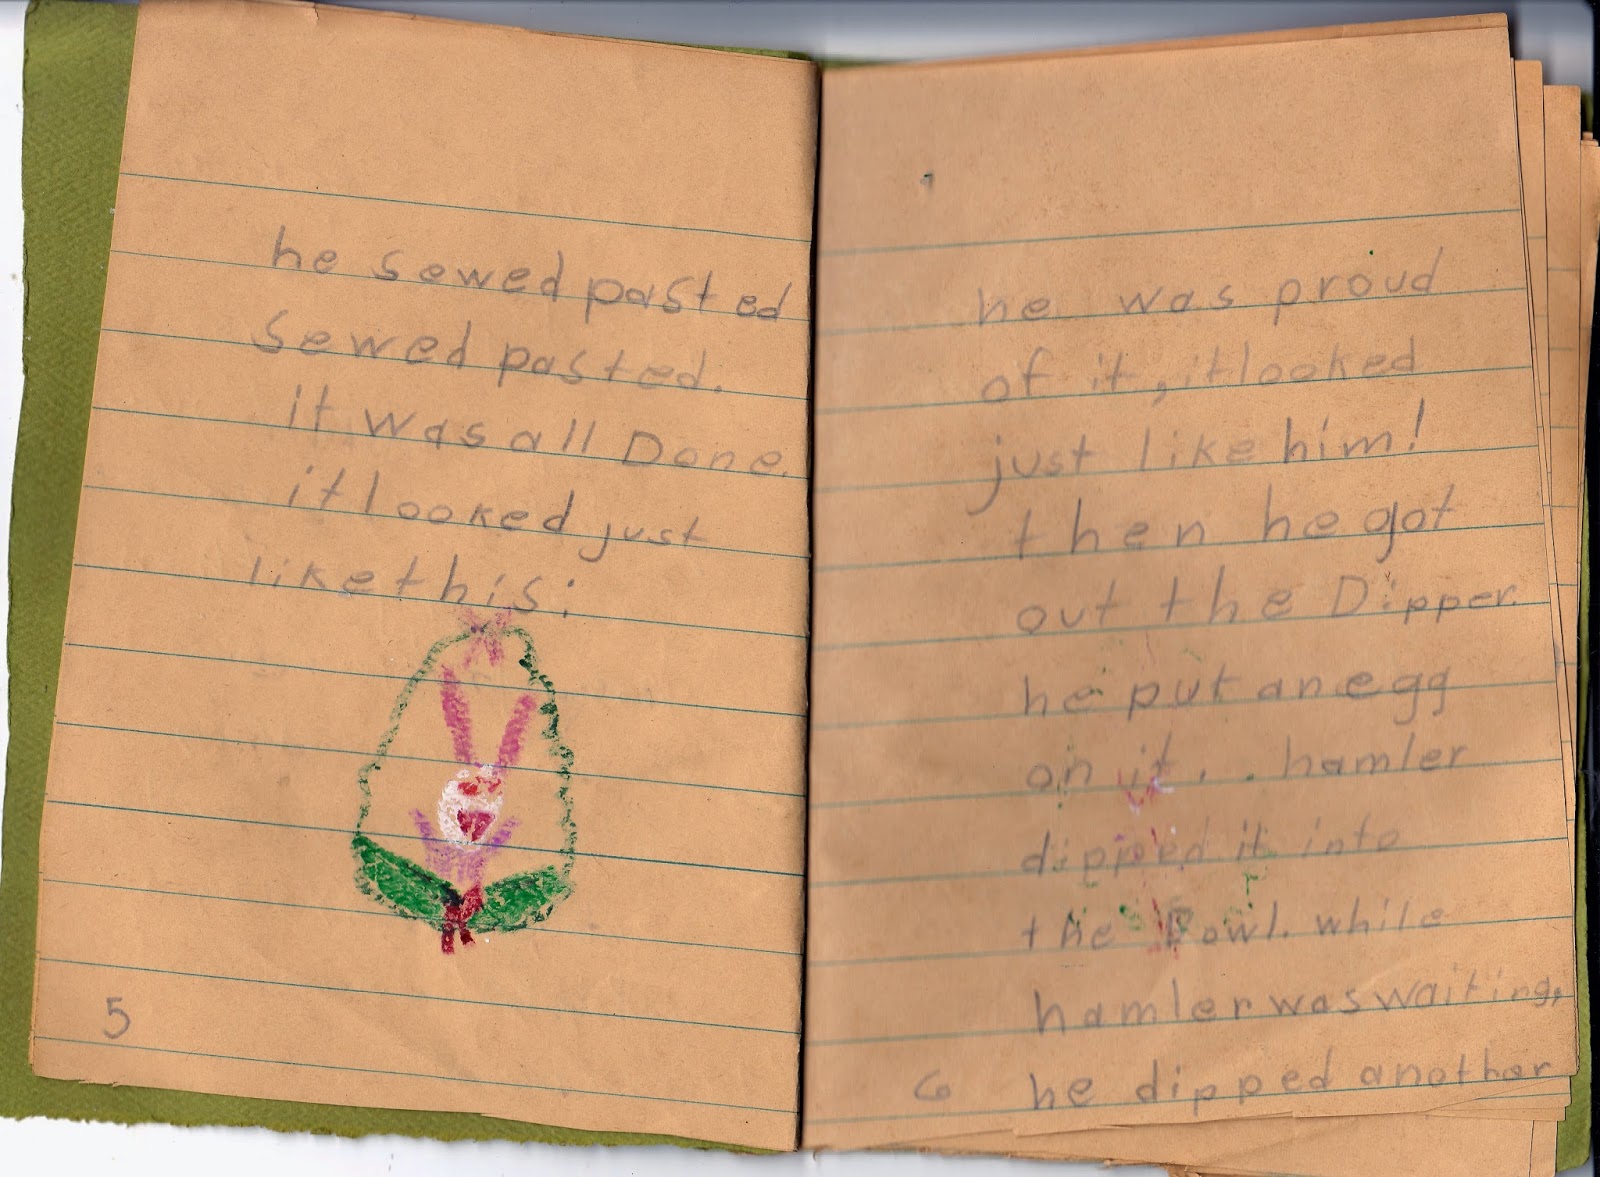 he sewed pasted
sewed pasted.
it was all Done.
it looked just
like this:
5
he was proud
of it, it looked
just like him!
then he got
out the Dipper.
he put an egg
on it. . hamler
dipped it into
the Bowl. while
hamler was waiting,
he dipped another
6